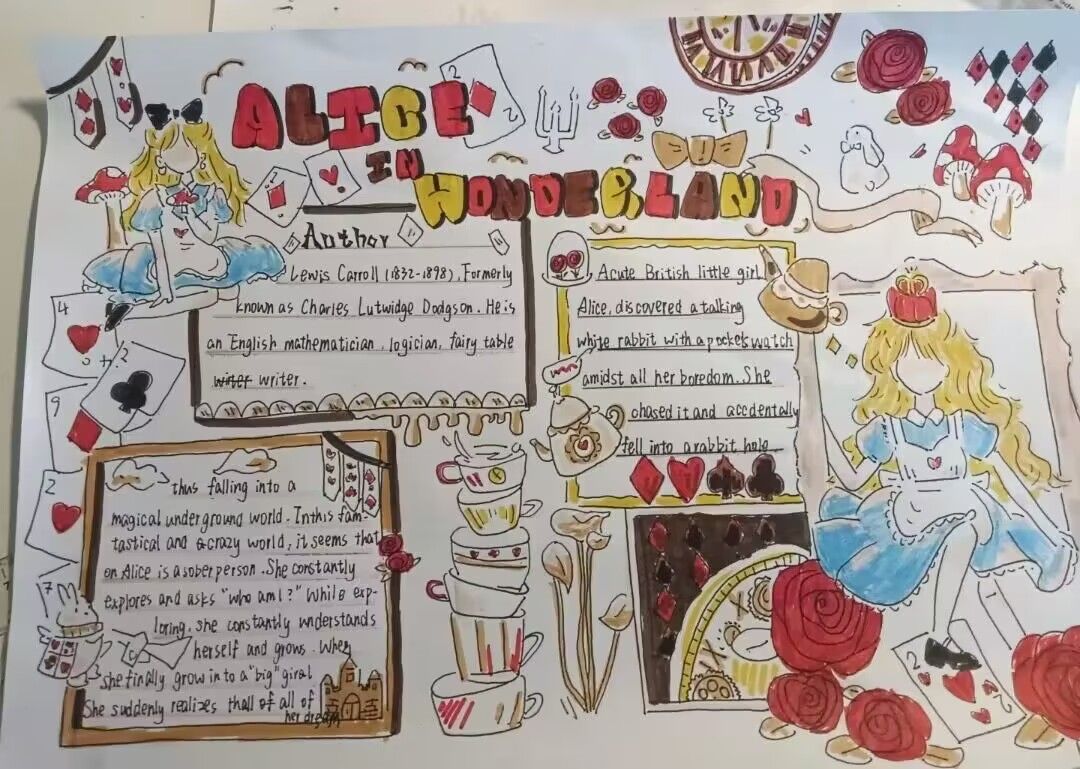 ALICE
IN
WONDERLAND
Author
Lewis Carroll (1832-1898), Formerly
known as Charles Lutwidge Dodgson. He is
an English mathematician, logician, fairy table
writer writer.
Acute British little girl,
Alice, discovered a talking
white rabbit with a pockets watch
amidst all her boredom. She
chased it and accdentally
fell into a rabbit hole
thus falling into a
magical underground world. In this fam-
tastical and a crazy world, it seems that
on Alice is a sober person. She constantly
explores and asks "who am I?" While exp-
loring, she constantly wnderstands
herself and grows. When
she finally grow in to a "big" giral
She suddenly realizes thall of all of
her dream
2
2
4
2
9
2
7
2